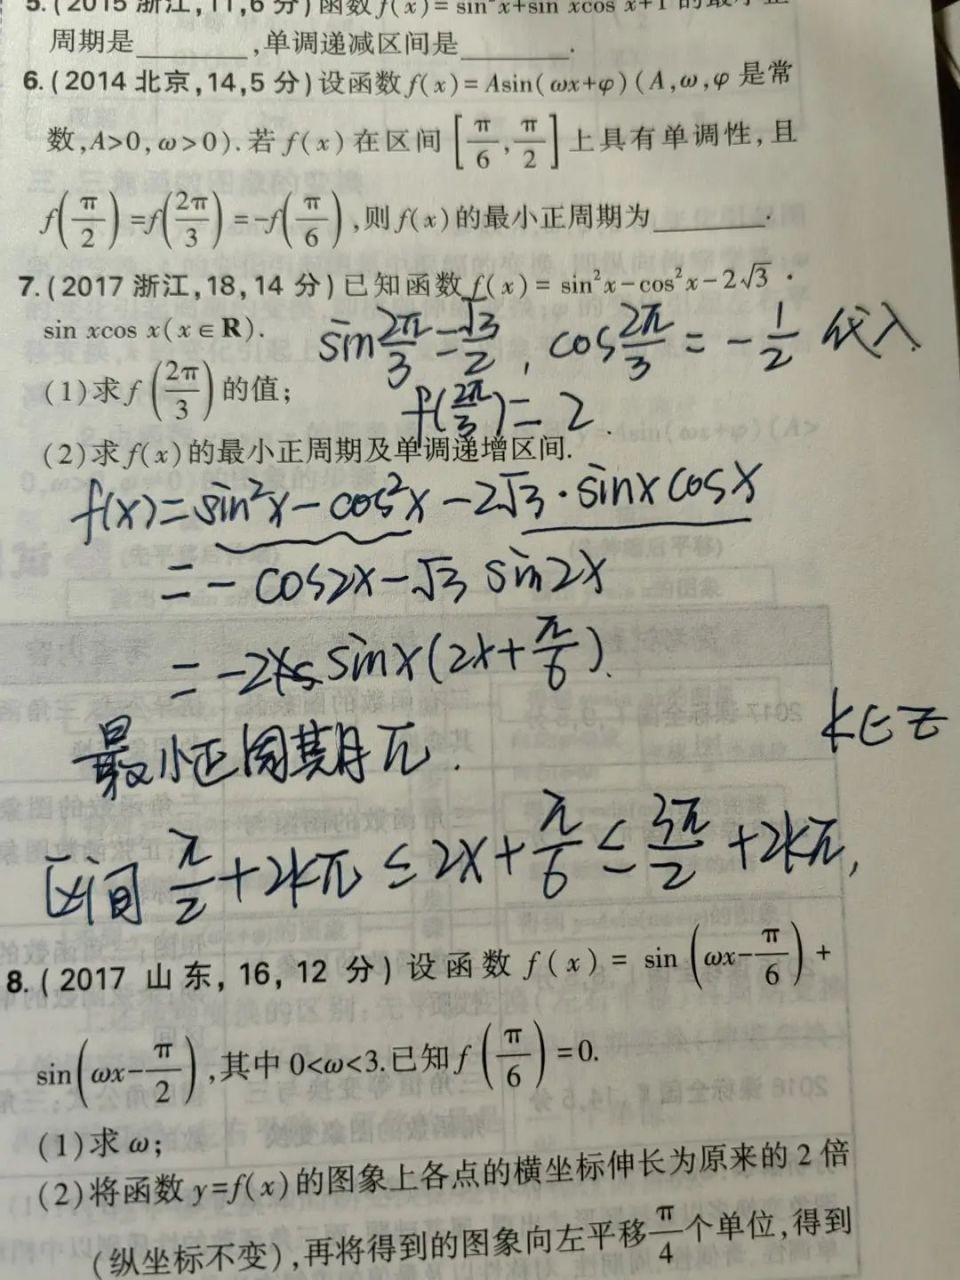 5.(2015 浙江,11,6 分)函数 f(x)= sin²x+sin xcos x+1 的最小正
周期是________,单调递减区间是________.
6.(2014 北京,14,5 分)设函数 f(x)= Asin(ωx+φ)(A,ω,φ 是常
数,A>0,ω>0).若 f(x)在区间[π/6,π/2]上具有单调性,且
f(π/2)=f(2π/3)=-f(π/6),则 f(x)的最小正周期为________.
7.(2017 浙江,18,14 分)已知函数 f(x)= sin²x-cos²x-2√3 ·
sin xcos x(x∈R).
sin2π/3-√3/2, cos2π/3=-1/2 代入.
(1)求 f(2π/3)的值;
f(2π/3)=2.
(2)求 f(x)的最小正周期及单调递增区间.
f(x)=sin²x-cos²x-2√3·sinxcosx
=-cos2x-√3 sin2x
=-2 sinx(2x+π/6).
最小正周期π.
k∈Z
区间 π/2+2kπ≤2x+π/6≤3π/2+2kπ,
8.(2017 山东,16,12 分)设函数 f(x)= sin(ωx-π/6)+
sin(ωx-π/2),其中 0<ω<3.已知 f(π/6)=0.
(1)求 ω;
(2)将函数 y=f(x)的图象上各点的横坐标伸长为原来的 2 倍
(纵坐标不变),再将得到的图象向左平移π/4个单位,得到